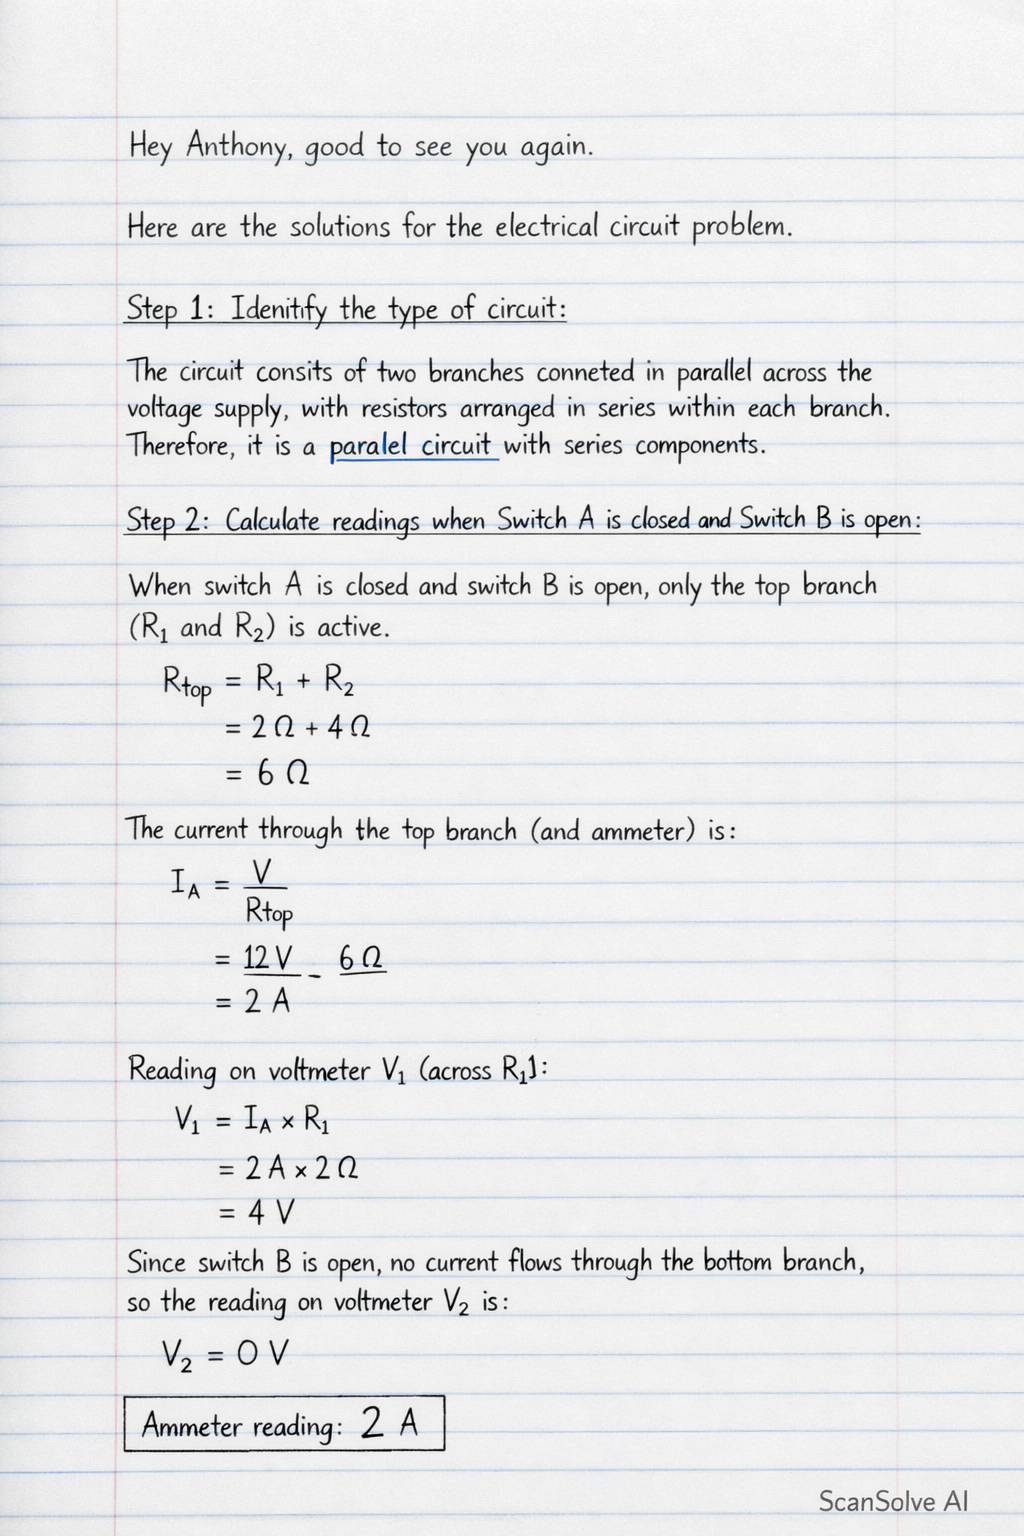 Hey Anthony, good to see you again.
Here are the solutions for the electrical circuit problem.
Step 1: Idenitify the type of circuit:
The circuit consits of two branches conneted in parallel across the
voltage supply, with resistors arranged in series within each branch.
Therefore, it is a paralel circuit with series components.
Step 2: Calculate readings when Switch A is closed and Switch B is open:
When switch A is closed and switch B is open, only the top branch
(R₁ and R₂) is active.
Rtop = R₁ + R₂
= 2 Ω + 4 Ω
= 6 Ω
The current through the top branch (and ammeter) is:
I_A = V
Rtop
= 12 V - 6 Ω
= 2 A
Reading on voltmeter V₁ (across R₁]:
V₁ = I_A × R₁
= 2 A × 2 Ω
= 4 V
Since switch B is open, no current flows through the bottom branch,
so the reading on voltmeter V₂ is:
V₂ = 0 V
Ammeter reading: 2 A
ScanSolve AI